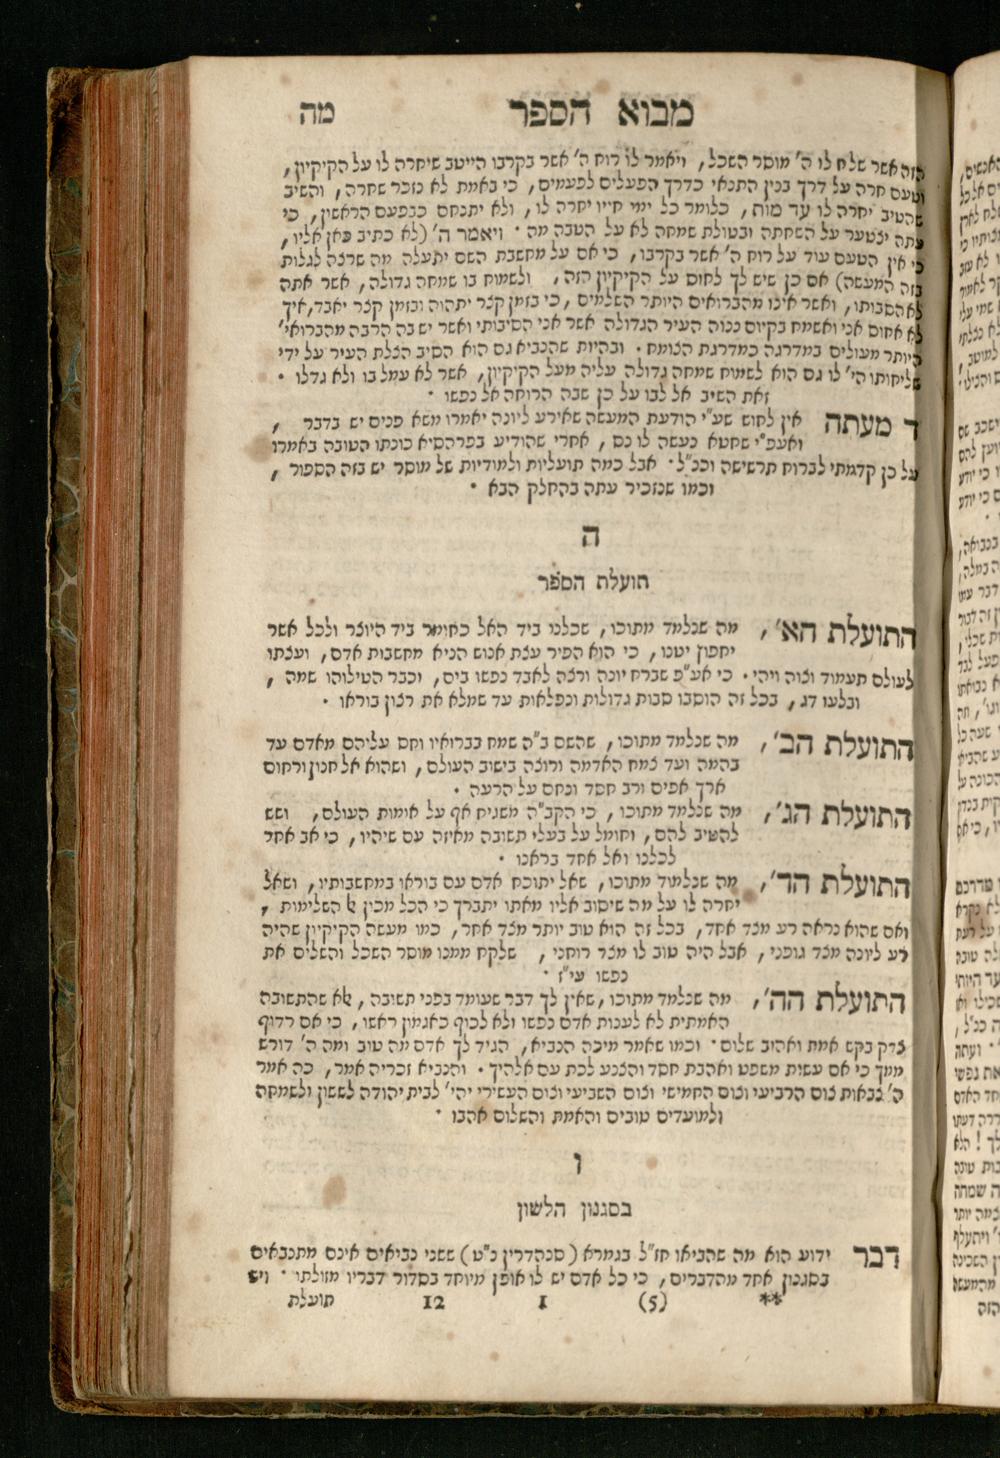 מבוא הספר מה
הזה אשר שלח לו ה' מוסר השכל, ויאמר לו רוח ה' אשר בקרבו הייטב שיחרה לו על הקיקיון,
וטעם חרה על דרך בנין התנאי כדרך הפעלים לפעמים, כי באמת לא נזכר שחרה, והשיב
שהטיב יחרה לו עד מות, כלומר כל ימי חייו יחרה לו, ולא יתנחם כבפעם הראשון, כי
עתה יצטער על השחתה ובטולת שמחה לא על הטבה מה · ויאמר ה' (לא כתיב כאן אליו,
כי אין הטעם עוד על רוח ה' אשר בקרבו, כי אם על מחשבת השם יתעלה מה שרצה לגלות
בזה המעשה) אם כן שיש לך לחוס על הקיקיון הזה, ולשמוח בו שמחה גדולה, אשר אתה
לא הסבותו, ואשר אינו מהברואים היותר השלמים, כי בזמן קצר יתהוה ובזמן קצר יאבד, איך
לא אחוס אני ואשמח בקיום ננוה העיר הגדולה אשר אני הסיבותי ואשר יש בה הרבה מהברואי'
היותר מעולים במדרגה כמדרגת הצומח · ובהיות שהנביא גם הוא הסיב הצלת העיר על ידי
שליחותו הי' לו גם הוא לשמוח שמחה גדולה עליה מעל הקיקיון, אשר לא עמל בו ולא גדלו ·
זאת השיב אל לבו על כן שבה הרוחה אל נפשו ·
ד מעתה אין לחוש שע"י הודעת המעשה שאירע ליונה יאמרו משא פנים יש בדבר ,
ואעפ"י שחטא נעשה לו נס, אחרי שהודיע בפרהסיא כונתו הטובה באמרו
על כן קדמתי לברוח תרשישה וכנ"ל · אבל כמה תועליות ולמודיות של מוסר יש בזה הספור ,
וכמו שנזכיר עתה בהחלק הבא ·
ה
תועלת הספר
התועלת הא', מה שנלמד מתוכו, שכלנו ביד האל כחומר ביד היוצר ולכל אשר
יחפוץ יטנו, כי הוא הפיר עצת אנוש הניא מחשבות אדם, ועצתו
לעולם תעמוד וצוה ויהי · כי אע"פ שברח יונה ורצה לאבד נפשו בים, וכבר הטילוהו שמה ,
ובלעו דג, בכל זה הוסבו סבות גדולות ונפלאות עד שמלא את רצון בוראו ·
התועלת הב', מה שנלמד מתוכו, שהשם ב"ה שמח בברואיו וחס עליהם מאדם עד
בהמה ועד צמח האדמה ורוצה בישוב העולם, ושהוא אל חנון ורחום
ארך אפים ורב חסד ונחם על הרעה ·
התועלת הג', מה שנלמד מתוכו, כי הקב"ה משגיח אף על אומות העולם, ושש
להטיב להם, וחומל על בעלי תשובה מאיזה עם שיהיו, כי אב אחד
לכלנו ואל אחד בראנו ·
התועלת הד', מה שנלמוד מתוכו, שאל יתוכח אדם עם בוראו במחשבותיו, ושאל
יחרה לו על מה שיסוב אליו מאתו יתברך כי הכל מכין אל השלימות ,
ואם שהוא נראה רע מצד אחד, בכל זה הוא טוב יותר מצד אחר, כמו מעשה הקיקיון שהיה
רע ליונה מצד גופני, אבל היה טוב לו מצד רוחני, שלקח ממנו מוסר השכל והשלים את
נפשו עי"ז ·
התועלת הה', מה שנלמד מתוכו, שאין לך דבר שעומד בפני תשובה, אלא שהתשובה
האמתית לא לענות אדם נפשו ולא לכוף כאגמון ראשו, כי אם רדוף
צדק בקש אמת ואהוב שלום · וכמו שאמר מיכה הנביא, הגיד לך אדם מה טוב ומה ה' דורש
ממך כי אם עשית משפט ואהבת חסד והצנע לכת עם אלהיך · והנביא זכריה אמר, כה אמר
ה' צבאות צום הרביעי וצום החמישי וצום השביעי וצום העשירי יהי' לבית יהודה לששון ולשמחה
ולמועדים טובים והאמת והשלום אהבו ·
ו
בסגנון הלשון
דבר ידוע הוא מה שהביאו חז"ל בגמרא (סנהדרין כ"ט) ששני נביאים אינם מתנבאים
בסגנון אחד מהדברים, כי כל אדם יש לו אופן מיוחד בסדור דבריו מזולתו · ויש
** (5) 1 12 תועלת